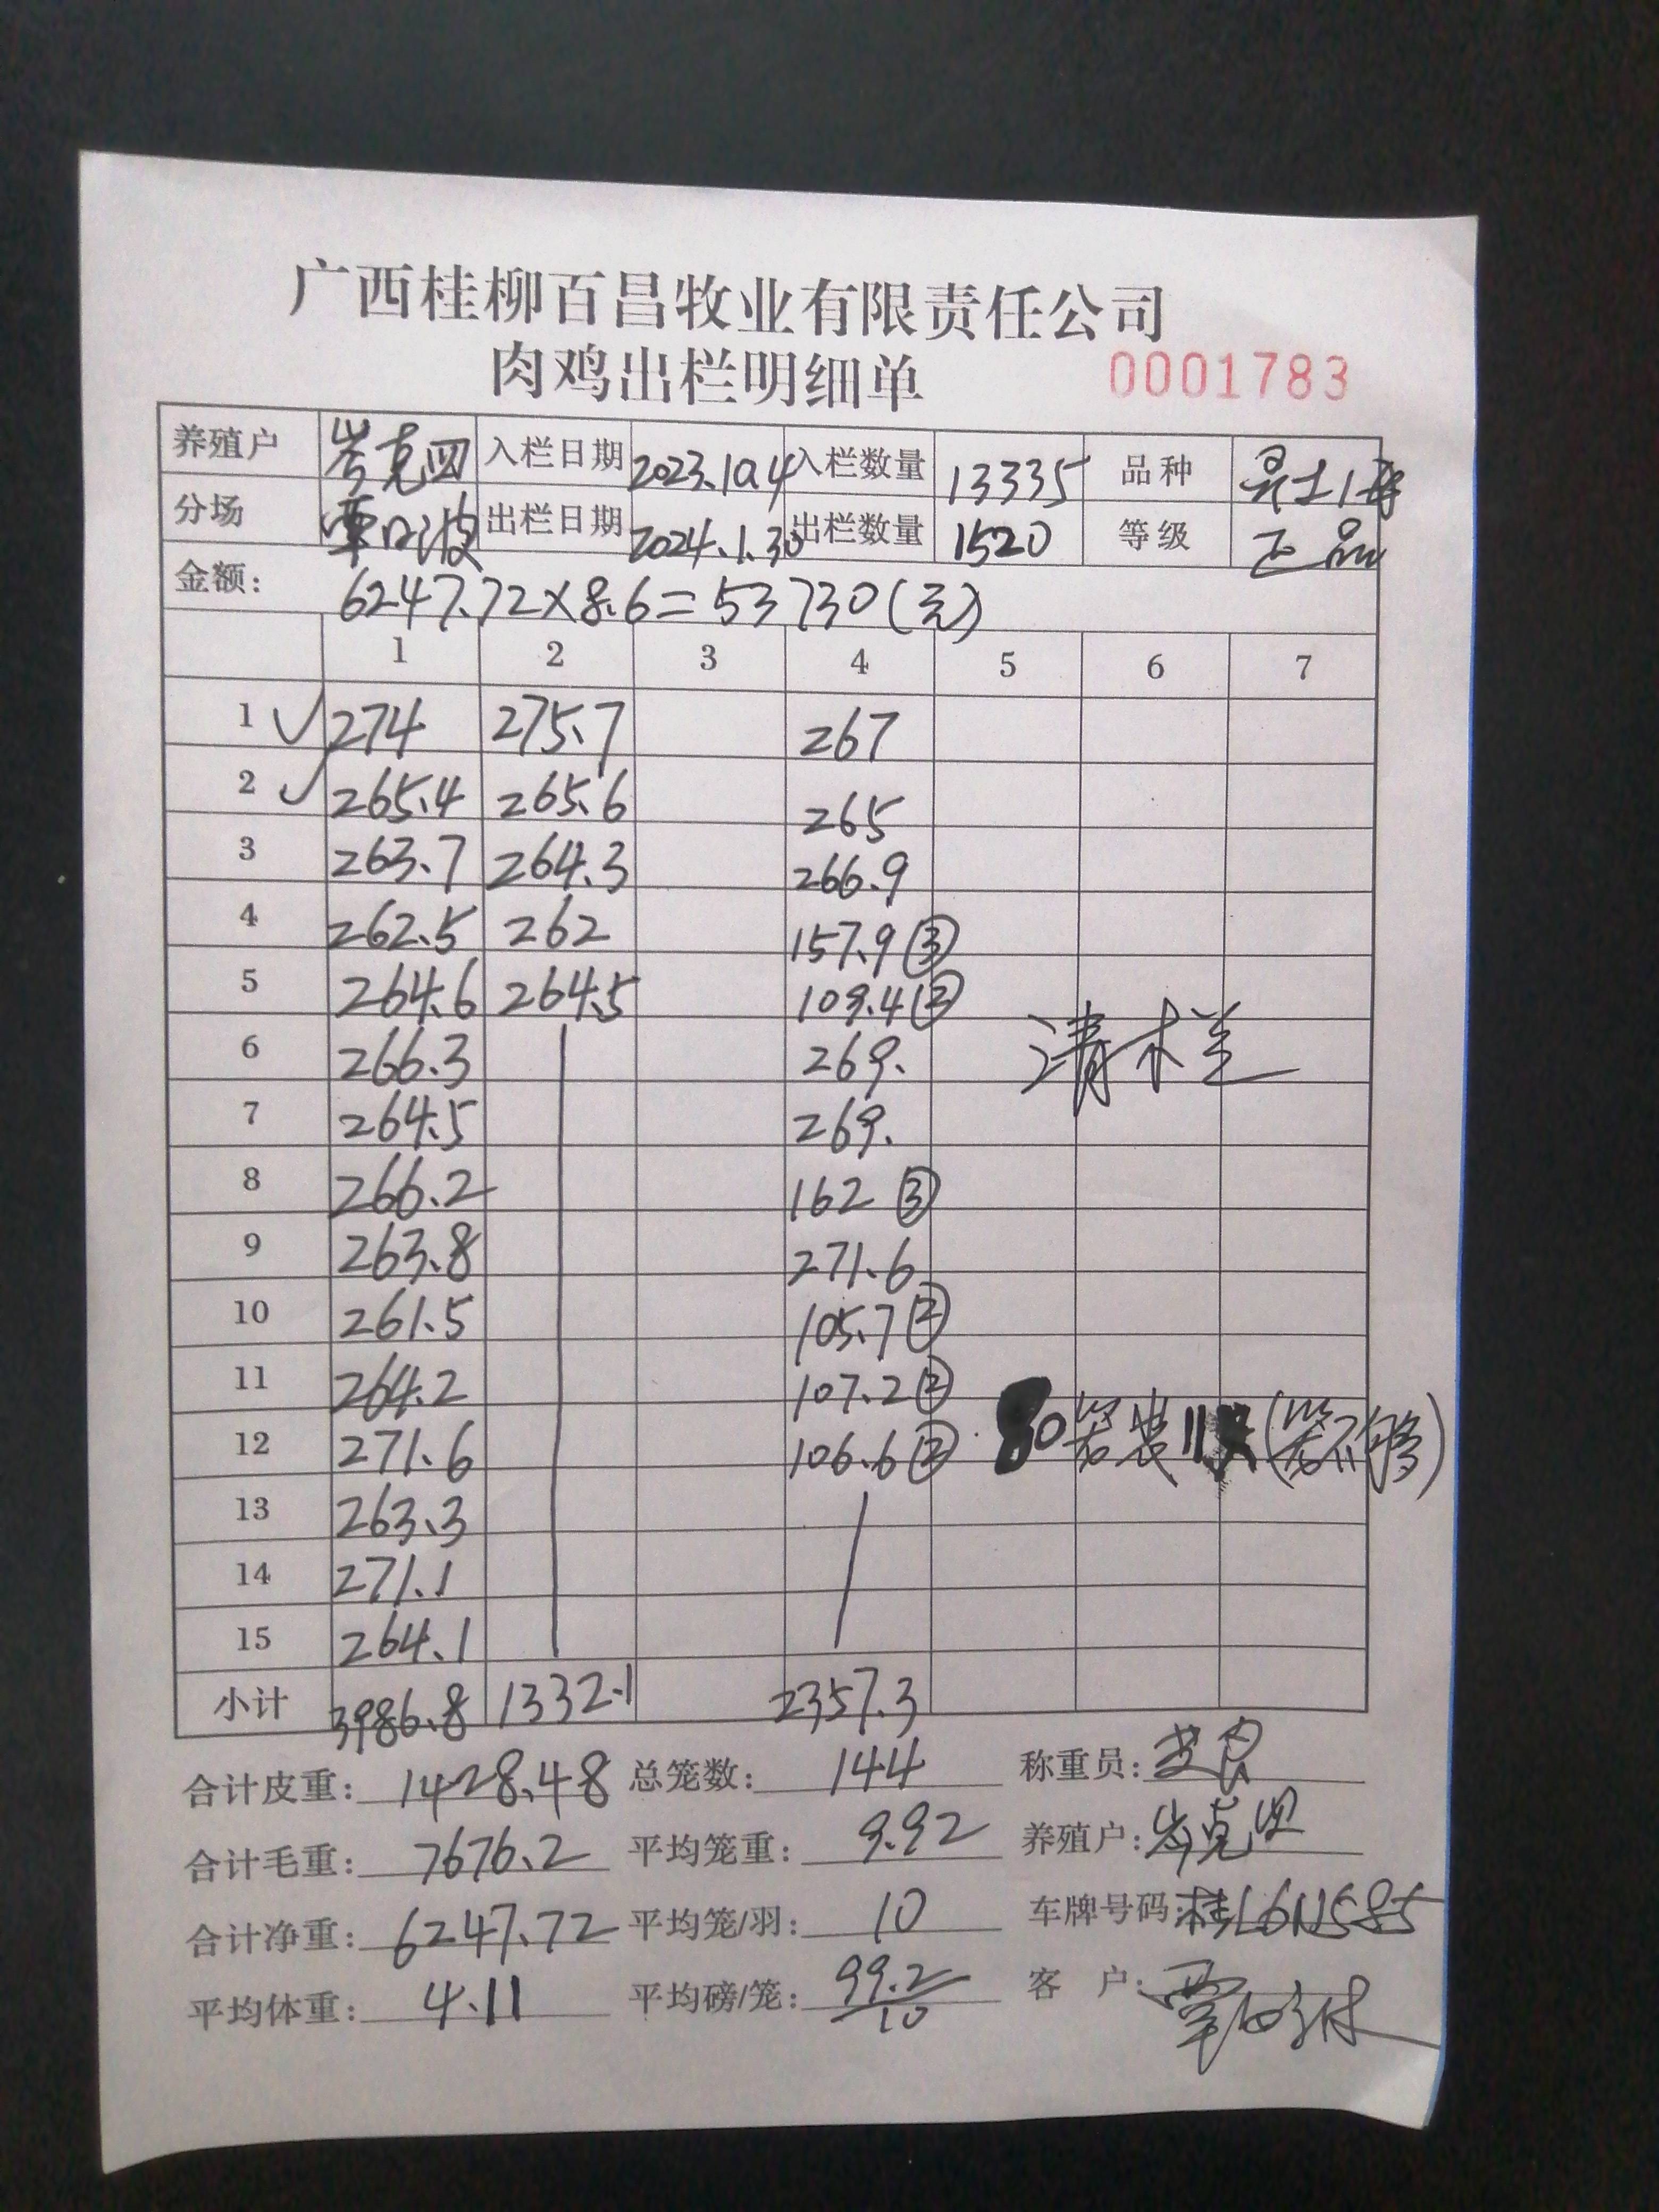 广西桂柳百昌牧业有限责任公司
肉鸡出栏明细单 0001783
养殖户 岑克四 入栏日期 2023.10.4 入栏数量 13335 品种
分场 出栏日期 2024.1.30 出栏数量 1520 等级 正品
金额: 6247.72×8.6=53730(元)
1 2 3 4 5 6 7
1 ✓ 274 275.7 267
2 ✓ 265.4 265.6 265
3 263.7 264.3 266.9
4 262.5 262 157.9 ③
5 264.6 264.5 109.4 ②
6 266.3 269. 清栏
7 264.5 269.
8 266.2 162 ③
9 263.8 271.6
10 261.5 105.7 ②
11 264.2 107.2 ②
12 271.6 106.6 ② 80笼装11只(笼不够)
13 263.3
14 271.1
15 264.1
小计 3986.8 1332.1 2357.3
合计皮重: 1428.48 总笼数: 144 称重员:
合计毛重: 7676.2 平均笼重: 9.92 养殖户: 岑克四
合计净重: 6247.72 平均笼/羽: 10 车牌号码: 桂L6N585
平均体重: 4.11 平均磅/笼: 99.2/10 客 户: